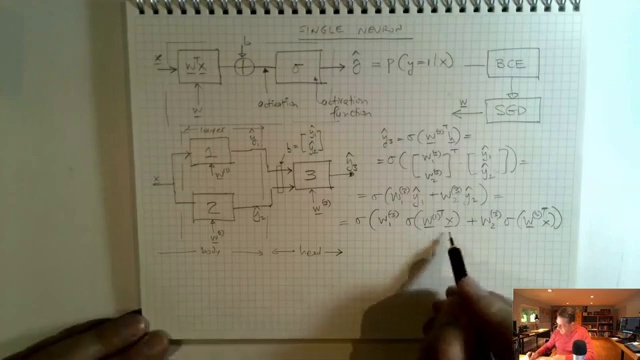 SINGLE NEURON
x → wᵀx → + → σ → ŷ = p(y=1|x) — BCE
b
w
activation
activation function
w
SGD
layer
ŷ₁
b = [ŷ₁ ŷ₂]
x
1
w⁽¹⁾
2
ŷ₂
3
ŷ₃
body
head
ŷ₃ = σ(w⁽³⁾ᵀ b) =
= σ([w₁⁽³⁾ w₂⁽³⁾]ᵀ [ŷ₁ ŷ₂]) =
= σ(w₁⁽³⁾ ŷ₁ + w₂⁽³⁾ ŷ₂) =
= σ(w₁⁽³⁾ σ(w⁽¹⁾ᵀ x) + w₂⁽³⁾ σ(w⁽²⁾ᵀ x))